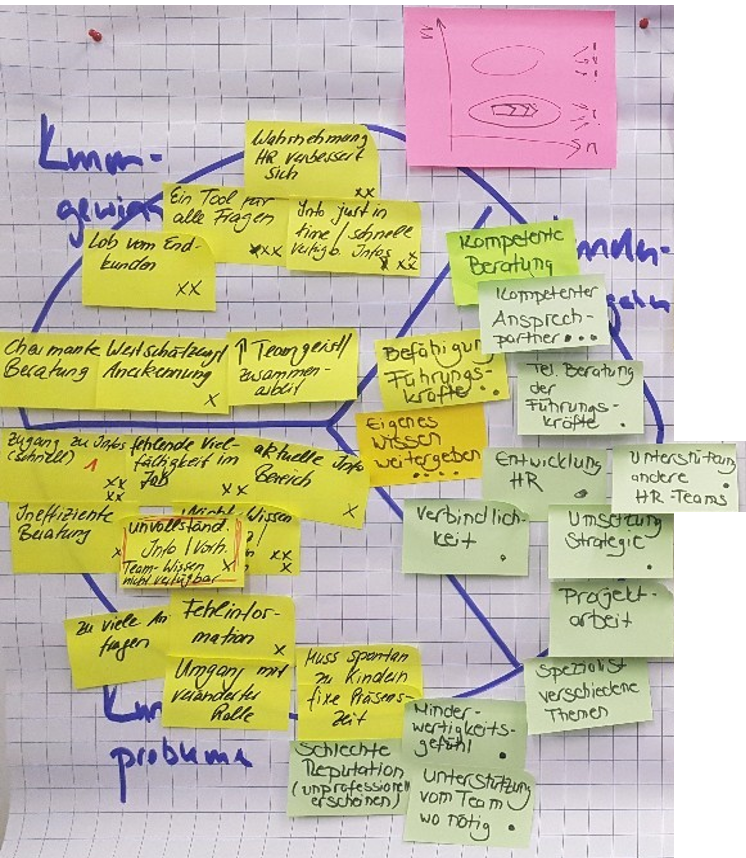 n
Wahrnehmung
HR verbessert
sich
xx
Ein Tool für
alle Fragen
xxx
Info just in
time / schnelle
verfügb. Infos
x xx
Lob vom End-
kunden
xx
gewinn
Kompetente
Beratung
Kompetenter
Ansprech-
partner
Charmante
Beratung
Wertschätzung/
Anerkennung
x
↑ Teamgeist/
zusammen-
arbeit
Befähigung
Führungs-
kräfte
Tel. Beratung
der
Führungs-
kräfte
Eigenes
Wissen
weitergeben
Zugang zu Infos
(schnell)
1
xx
xx
fehlende Viel-
fältigkeit im
Job
xx
aktuelle Info
Bereich
x
Entwicklung
HR
Unterstützung
andere
HR-Teams
Ineffiziente
Beratung
x
unvollständ.
Info / Vorh.
Team-Wissen
nicht verfügbar
x
Nicht-Wissen
xx
x
Verbindlich-
keit
Umsetzung
Strategie
zu viele An-
fragen
Fehlinfor-
mation
x
Projekt-
arbeit
Umgang mit
veränderter
Rolle
Muss spontan
zu Kindern
fixe Präsens-
zeit
Spezialist
verschiedene
Themen
probleme
Minder-
wertigkeits-
gefühl
Schlechte
Reputation
(unprofessionell
erscheinen)
Unterstützung
vom Team
wo nötig